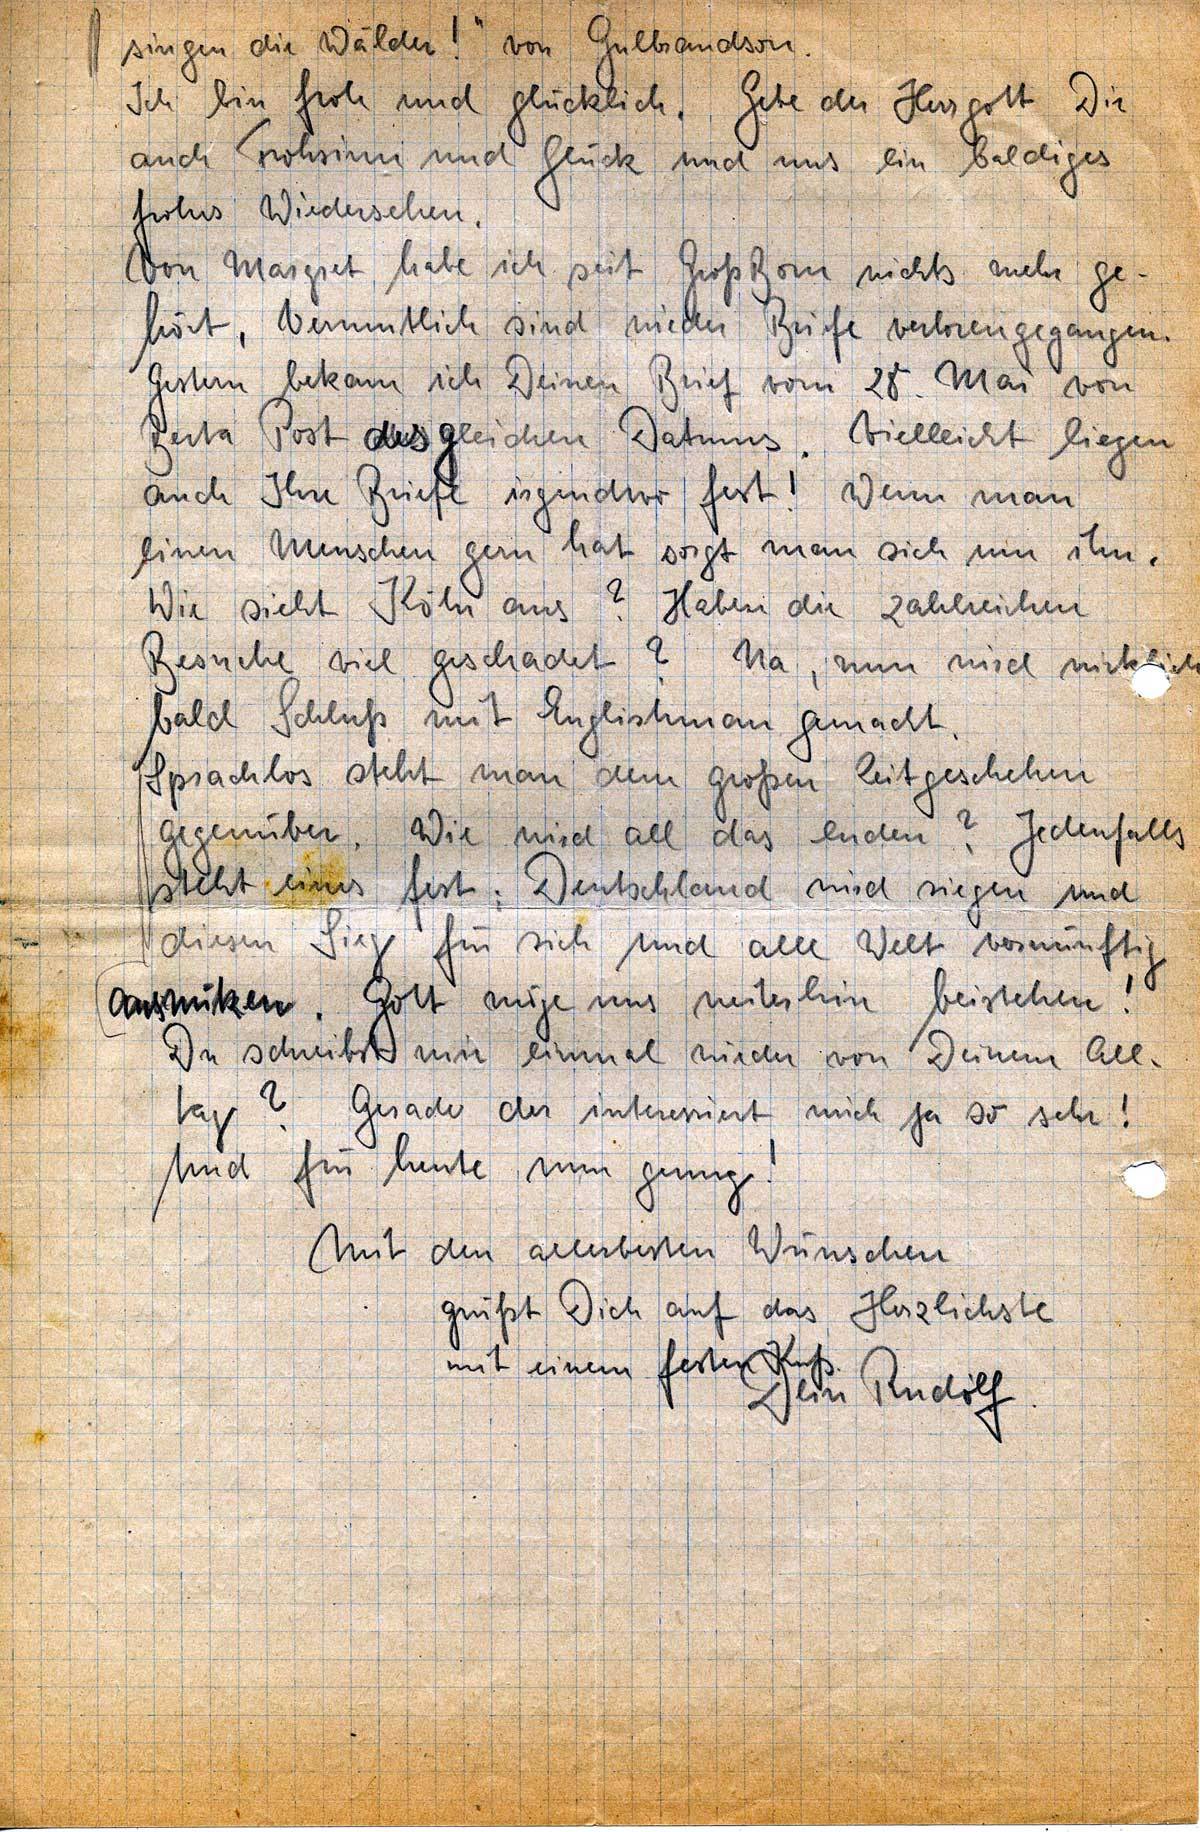 singen die Wälder!" von Gulbrandson.
Ich bin froh und glücklich. Gebe der Herrgott Dir
auch Frohsinn und Glück und uns ein baldiges
frohes Wiedersehen.
Von Margret habe ich seit Groß Born nichts mehr ge-
hört, Vermutlich sind wieder Briefe verlorengegangen.
Gestern bekam ich Deinen Brief vom 28. Mai von
Berta Post des gleichen Datums. Vielleicht liegen
auch Ihre Briefe irgendwo fest! Wenn man
einen Menschen gern hat sorgt man sich um ihn.
Wie sieht Köln aus? Haben die zahlreichen
Besuche viel geschadet? Na, nun wird wirklich
bald Schluß mit Englishman gemacht.
Sprachlos steht man dem großen Zeitgeschehen
gegenüber. Wie wird all das enden? Jedenfalls
steht eines fest: Deutschland wird siegen und
diesen Sieg für sich und alle Welt vernünftig
ausnützen. Gott möge uns weiterhin beistehen!
Du schreibst mir einmal wieder von Deinem All-
tag? Gerade der interessiert mich ja so sehr!
Und für heute nun genug!
Mit den allerbesten Wünschen
grüßt Dich auf das Herzlichste
mit einem festen Kuß.
Dein Rudolf